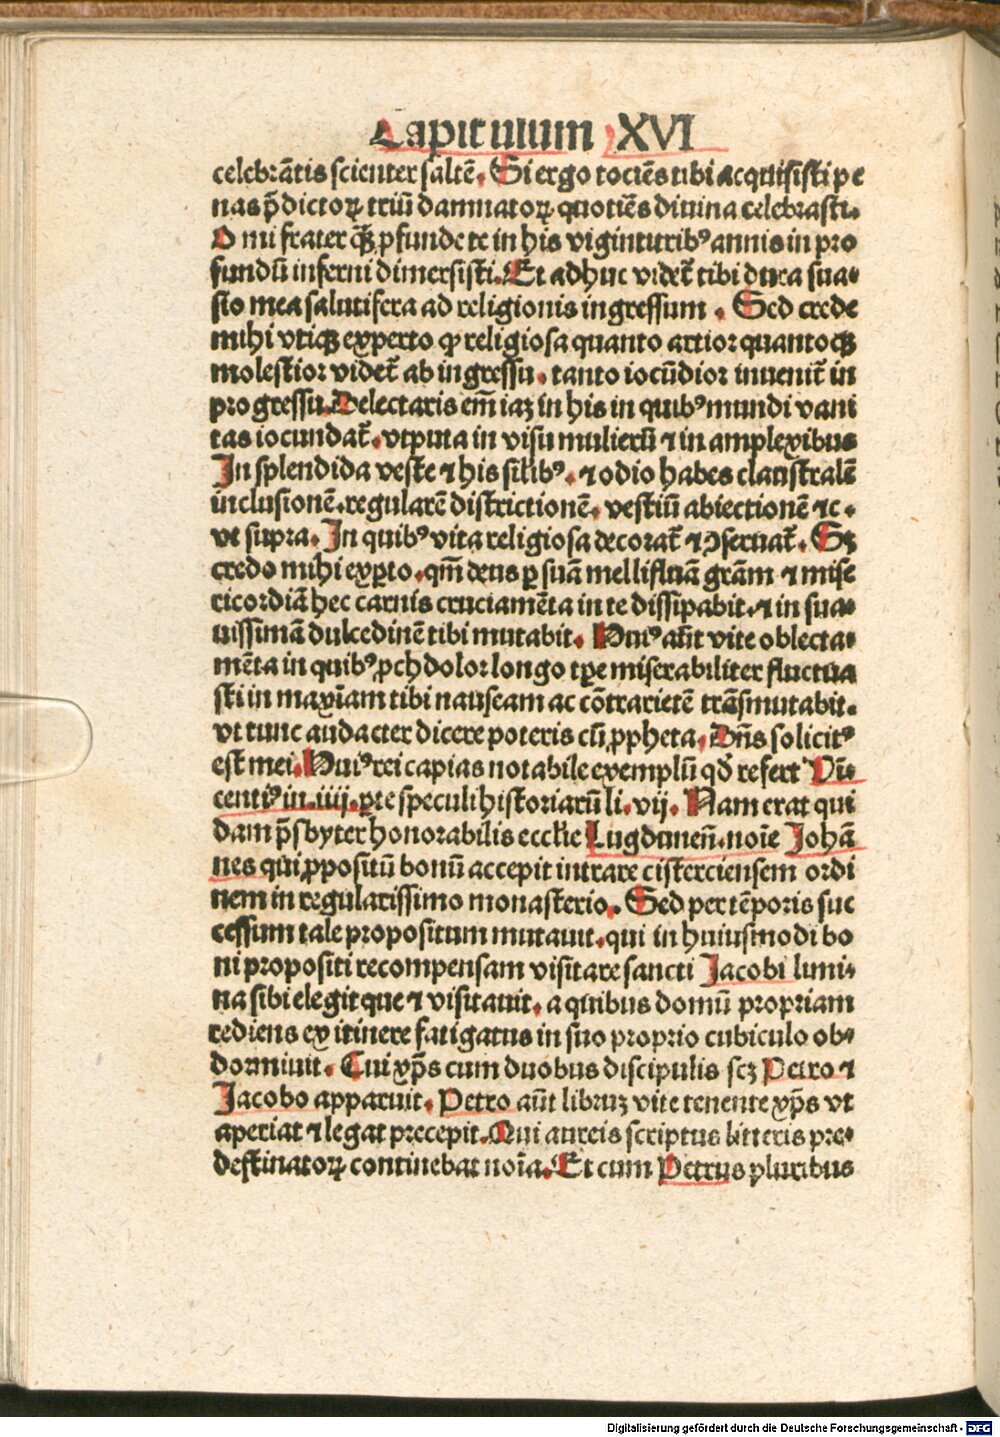 Capitulum XVI
celebrãtis scienter saltẽ. Si ergo tociẽs tibi acquisisti pe
nas p̃dictoꝝ triũ damnatoꝝ quotiẽs diuina celebrasti.
O mi frater q̃ꝫ ꝓfunde te in his viginti tribꝰ annis in pro
fundũ inferni dimersisti. Et adhuc videt̃ tibi dura sua-
sio mea salutifera ad religionis ingressum. Sed crede
mihi vtiqꝫ experto ꝙ religiosa quanto artior quantoqꝫ
molestior videt̃ ab ingressu. tanto iocũdior inuenit̃ in
progressu. Delectaris em̃ iaꝫ in his in quibꝰ mundi vani
tas iocundat̃. vtputa in visu mulierũ ⁊ in amplexibus
In splendida veste ⁊ his silibꝰ. ⁊ odio habes claustralẽ
inclusionẽ. regularẽ districtionẽ. vestiũ abiectionẽ ⁊c.
vt supra. In quibꝰ vita religiosa decorat̃ ⁊ ꝯseruat̃. Sꝫ
credo mihi exꝑto. qm̃ deus ꝑ suã mellifluã grãm ⁊ mise
ricordiã hec carnis cruciamẽta in te dissipabit. ⁊ in sua-
uissimã dulcedinẽ tibi mutabit. Huiꝰ aũt vite oblecta-
mẽta in quibꝰ ꝓch dolor longo tꝑe miserabiliter fluctua
sti in maxĩam tibi nauseam ac cõtrarietẽ trãsmutabit.
vt tunc audacter dicere poteris cũ ꝓpheta. Dñs solicitꝰ
est mei. Huiꝰ rei capias notabile exemplũ qd̃ refert Vĩ-
centiꝰ in .iiij. ꝑte speculi historiarũ li. vij. Nam erat qui
dam p̃sbyter honorabilis eccl̃ie Lugdunen̄. noĩe Johã
nes qui ꝓpositũ bonũ accepit intrare cisterciensem ordi
nem in regularissimo monasterio. Sed per tẽporis suc
cessum tale propositum mutauit. qui in huiusmodi bo
ni propositi recompensam visitare sancti Jacobi limi-
na sibi elegit que ⁊ visitauit. a quibus domũ propriam
rediens ex itinere fatigatus in suo proprio cubiculo ob-
dormiuit. Cui xp̃s cum duobus discipulis scꝫ Petro ⁊
Jacobo apparuit. Petro aũt libruꝫ vite tenente xp̃s vt
aperiat ⁊ legat precepit. Qui aureis scriptus litteris pre-
destinatoꝝ continebat noĩa. Et cum Petrus pluribus
Digitalisierung gefördert durch die Deutsche Forschungsgemeinschaft - DFG